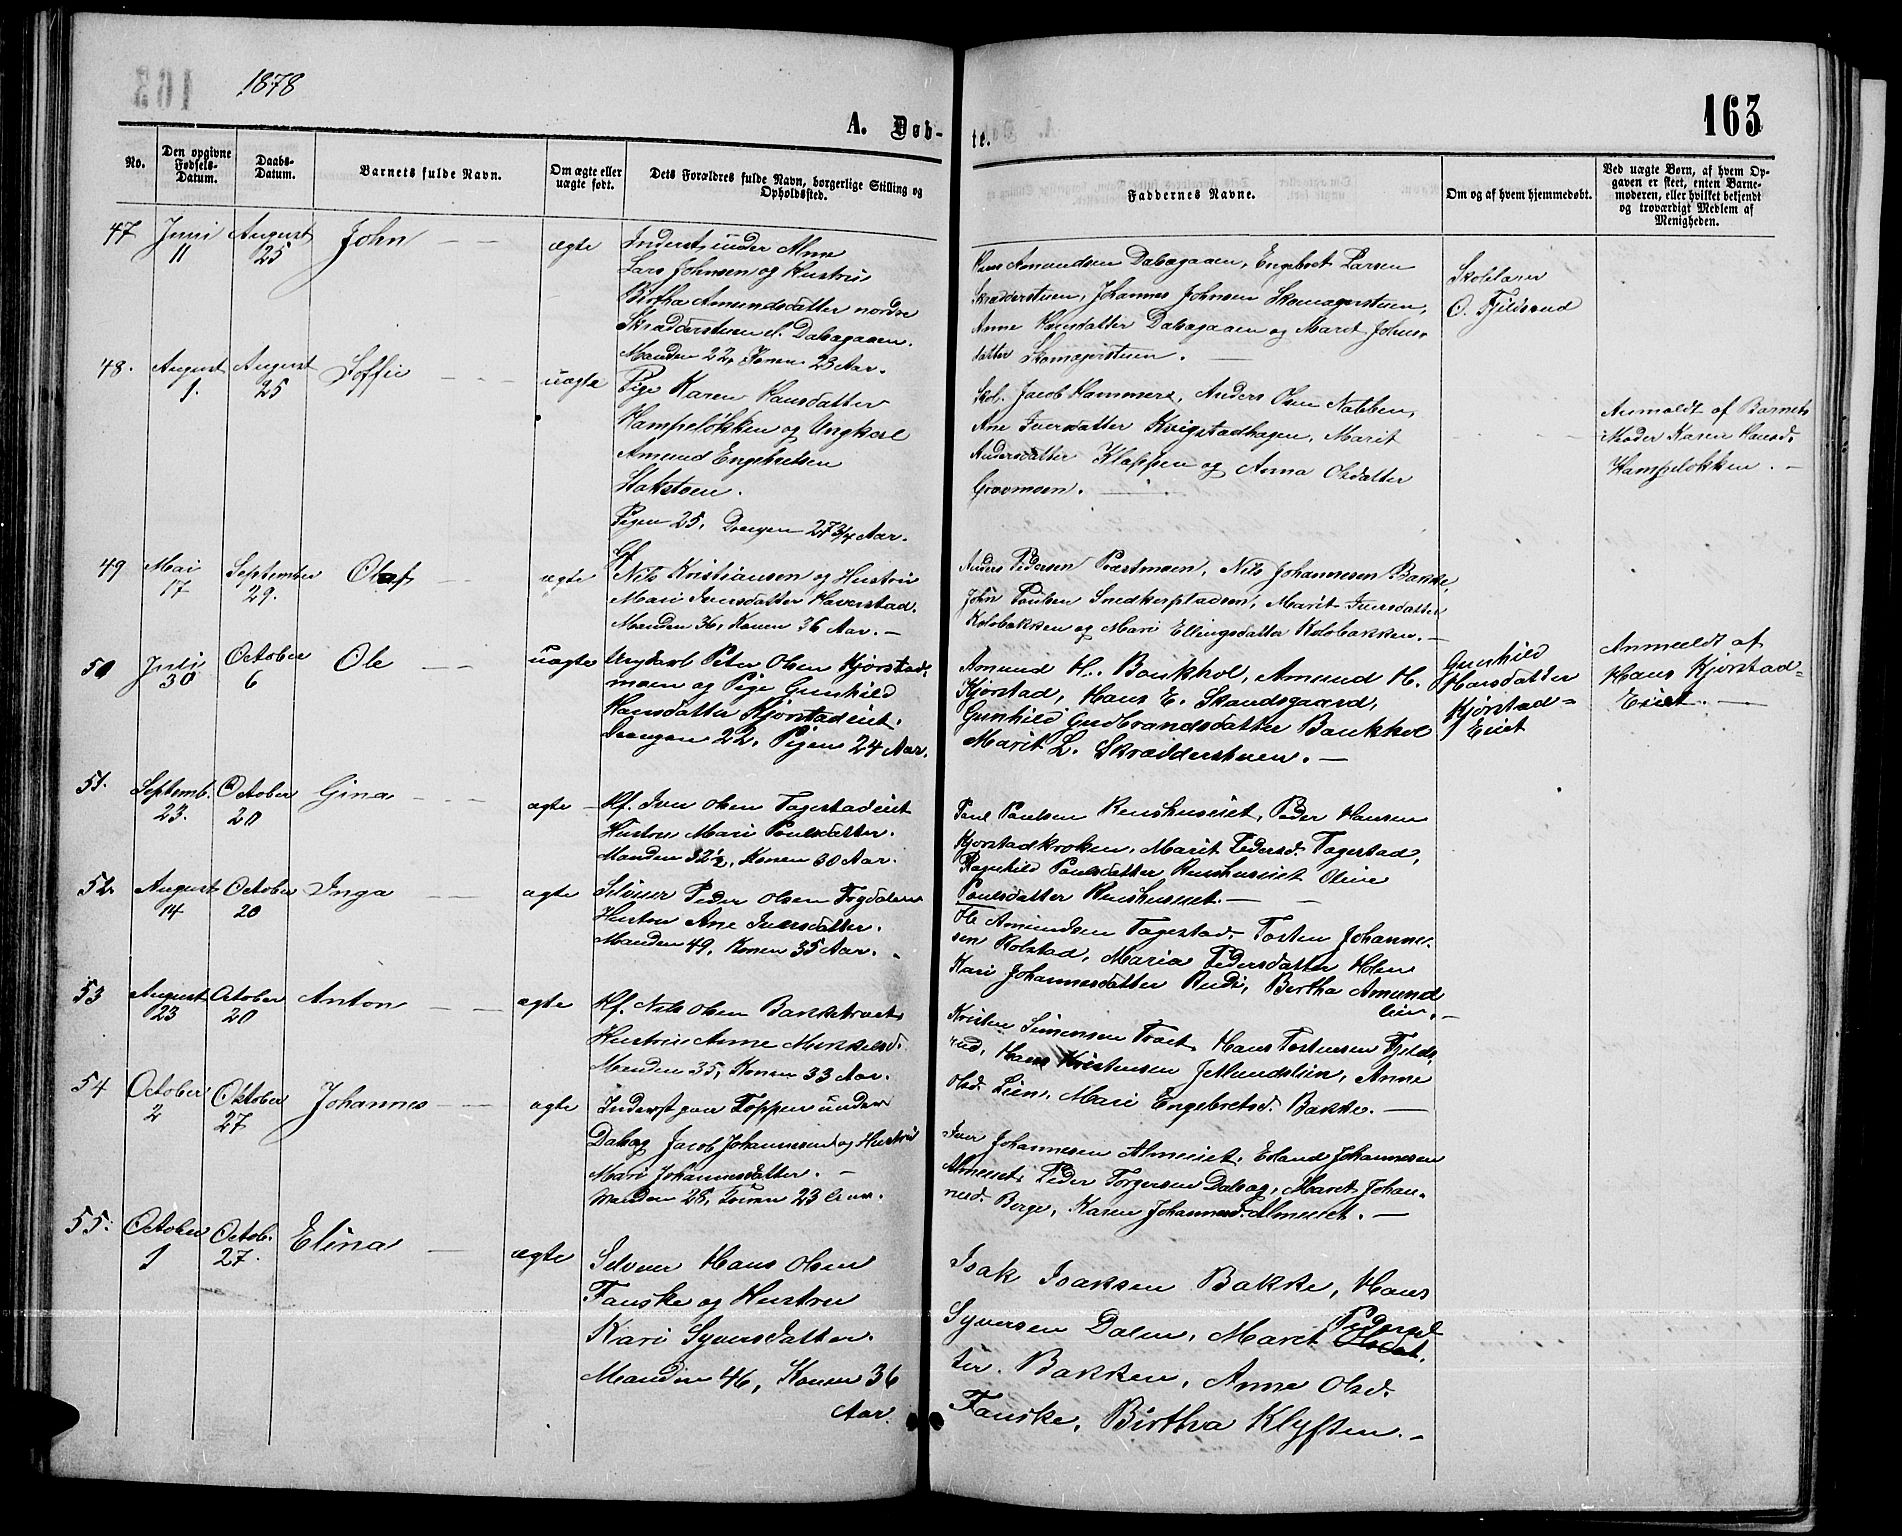 1878
163
A. Døb-
te.
No.
Den opgivne Fødsels-Datum.
Daabs-Datum.
Barnets fulde Navn.
Om ægte eller uægte født.
Dets Forældres fulde Navn, borgerlige Stilling og Opholdssted.
Faddernes Navne.
Om og af hvem hjemmedøbt.
Ved uægte Børn, af hvem Opgaven er skeet, enten Barnemoderen, eller hvilket bekjendt og troværdigt Medlem af Menigheden.
47 Juni 11 August 25 John ægte
Inderst under Alme
Lars Johnsen og Hustru
Birtha Amundsdatter nordre
Skrædderstuen u. Dalsgaaen.
Manden 22, Konen 23 Aar.
Hans Amundsen Dalsgaaen, Engebret Larsen
Skrædderstuen, Johannes Johnsen Skomagerstuen,
Anne Hansdatter Dalsgaaen og Marit Johns-
datter Skomagerstuen.
Skolelærer
O. Fjeldsend
48. August 1. August 25 Soffie uægte
Pige Karen Hansdatter
Hampeløkken og Ungkarl
Amund Engebretsen
Stakstoen.
Pigen 25, Drengen 27 3/4 Aar.
Skol. Jacob Hammers, Anders Olsen Nabben,
Ane Iversdatter Kvigstadhagen, Marit
Andersdatter Klappen og Anna Olsdatter
Gravmoen.
Anmeldt af Barnets
Moder Karen Hansd.
Hampeløkken.
49 Mai 17 September 29. Olaf ægte
Gf.
Nils Kristiansen og Hustru
Mari Iversdatter Haverstad.
Manden 36, Konen 36 Aar.
Anders Pedersen Præstmoen, Nils Johannesen Bakke,
John Poulsen Snedkerpladsen, Marit Iversdatter
Kolobakken og Mari Ellingsdatter Kolobakken.
50 Juli 30 October 6 Ole uægte
Ungkarl Peter Olsen Kjørstad-
moen og Pige Gunhild
Hansdatter Kjørstadeiet.
Drengen 22, Pigen 24 Aar.
Amund H. Baukhol, Amund H.
Kjørstad, Hans E. Skandsgaard,
Gunhild Gudbrandsdatter Baukhol
Marit L. Skrædderstuen.
Gunhild
Hansdatter
Kjørstad-
Eiet
Anmeldt af
Hans Kjørstad-
Eiet.
51. Septemb. 23. October 20 Gina ægte
Hf. Iver Olsen Tagestadeiet
Hustru Mari Poulsdatter.
Manden 32 1/2, Konen 30 Aar.
Poul Poulsen Kunshuseiet, Peder Hansen
Kjørstadkroken, Marit Pedersd. Tagestad,
Ragnhild Poulsdatter Kunshuseiet Oline
Poulsdatter Kunshuseiet.
52. August 14 October 20 Inga ægte
Selveier Peder Olsen Fogdalen
Hustru Ane Iversdatter.
Manden 49, Konen 35 Aar.
Ole Amundsen Tagestad, Tosten Johanne-
sen Rolstad, Maria Pedersdatter Holen
Kari Johannesdatter Rudi, Bertha Amund
lien.
53 August 23 October 20 Anton ægte
Hf. Nils Olsen Bakketræet
Hustru Anne Mikkelsd.
Manden 35, Konen 33 Aar.
Kristen Simensen Traet, Hans Tostensen Fjelds-
rud, Hans Kristensen Jetlundslien, Anne
Olsd. Lien, Mari Engebretsd. Bakke.
54 October 2 Oktober 27 Johannes ægte
Inderst paa Toppen under
Dalsog Jacob Johannesen og Hustru
Mari Johannesdatter.
Manden 28, Konen 23 Aar.
Iver Johannesen Almeeiet, Erland Johannesen
Almeeiet, Peder Torgersen Dalsog, Maret Johan-
nesd. Berge, Karen Johannesd. Almeeiet.
55. October 1 Octob. 27. Elina ægte
Selveier Hans Olsen
Fauske og Hustru
Kari Syversdatter.
Manden 46, Konen 36
Aar.
Isak Isaksen Bakke, Hans
Syversen Dalen, Maret Pedersdat
Olsdat.
ter. Bakken, Anne Olsd.
Fauske, Birtha Klyften.